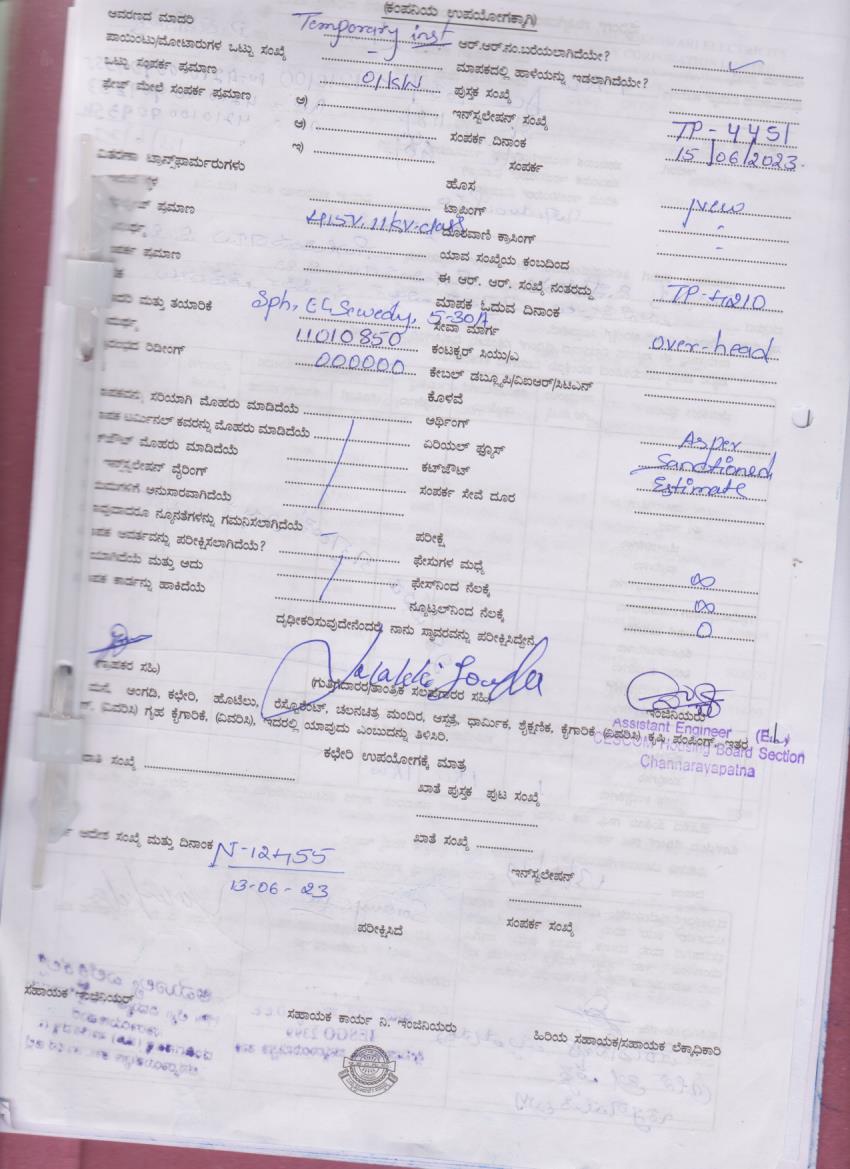 (ಕಂಪನಿಯ ಉಪಯೋಗಕ್ಕಾಗಿ)
ಆವರಣದ ಮಾದರಿ Temporary inst ಆರ್.ಆರ್.ನಂ.ಬರೆಯಲಾಗಿದೆಯೇ?
ಪಾಯಿಂಟು/ಮೋಟಾರುಗಳ ಒಟ್ಟು ಸಂಖ್ಯೆ - ಮಾಪಕದಲ್ಲಿ ಹಾಳೆಯನ್ನು ಇಡಲಾಗಿದೆಯೇ? ✓
ಒಟ್ಟು ಸಂಪರ್ಕ ಪ್ರಮಾಣ 01KW ಪುಸ್ತಕ ಸಂಖ್ಯೆ
ಫೇಸ್ ಮೇಲೆ ಸಂಪರ್ಕ ಪ್ರಮಾಣ ಅ) ಇನ್‌ಸ್ಟಲೇಷನ್ ಸಂಖ್ಯೆ TP-4451
ಆ) ಸಂಪರ್ಕ ದಿನಾಂಕ 15/06/2023.
ಇ) ಸಂಪರ್ಕ
ವಿತರಣಾ ಟ್ರಾನ್ಸ್‌ಫಾರ್ಮರುಗಳು ಹೊಸ New
ಟ್ಯಾಪಿಂಗ್ -
ಪ್ರಮಾಣ 415V. 11KV. class ದೂರವಾಣಿ ಕ್ರಾಸಿಂಗ್ -
ಯಾವ ಸಂಖ್ಯೆಯ ಕಂಬದಿಂದ
ಪ್ರಮಾಣ ಈ ಆರ್. ಆರ್. ಸಂಖ್ಯೆ ನಂತರದ್ದು TP-4210
ಮಾಪಕ ಓದುವ ದಿನಾಂಕ
ಮತ್ತು ತಯಾರಿಕೆ Sph, El Sewedy, 5-30A ಸೇವಾ ಮಾರ್ಗ over-head
11010850 ಕಂಟಕ್ಟರ್ ಸಿಯು/ಎ
ರಿಡೀಂಗ್ 000000 ಕೇಬಲ್ ಡಬ್ಲ್ಯೂಪಿ/ವಿಐಆರ್/ಸಿಟಿಎನ್
ಕೊಳವೆ
ಸರಿಯಾಗಿ ಮೊಹರು ಮಾಡಿದೆಯೆ ಅರ್ಥಿಂಗ್ As per
ಟರ್ಮಿನಲ್ ಕವರನ್ನು ಮೊಹರು ಮಾಡಿದೆಯೆ ಏರಿಯಲ್ ಫ್ಯೂಸ್ Sanctioned
ಮೊಹರು ಮಾಡಿದೆಯೆ ಕಟ್‌ಔಟ್ Estimate
ಇನ್‌ಸ್ಟಲೇಷನ್ ವೈರಿಂಗ್ ಸಂಪರ್ಕ ಸೇವೆ ದೂರ
ಅನುಸಾರವಾಗಿದೆಯೆ
ನ್ಯೂನತೆಗಳನ್ನು ಗಮನಿಸಲಾಗಿದೆಯೆ - ಪರೀಕ್ಷೆ
ಪರೀಕ್ಷಿಸಲಾಗಿದೆಯೆ? ಫೇಸುಗಳ ಮಧ್ಯೆ ∞
ಮತ್ತು ಅದು ಫೇಸ್‌ನಿಂದ ನೆಲಕ್ಕೆ ∞
ಕಾರ್ಡನ್ನು ಹಾಕಿದೆಯೆ ನ್ಯೂಟ್ರಲ್‌ನಿಂದ ನೆಲಕ್ಕೆ 0
ದೃಢೀಕರಿಸುವುದೇನೆಂದರೆ, ನಾನು ಸ್ಥಾವರವನ್ನು ಪರೀಕ್ಷಿಸಿದ್ದೇನೆ
(ಗ್ರಾಹಕರ ಸಹಿ) (ಗುತ್ತಿಗೆದಾರರ/ತಾಂತ್ರಿಕ ಸಲಹೆಗಾರರ ಸಹಿ) ಇಂಜಿನಿಯರು
ಮನೆ, ಅಂಗಡಿ, ಕಛೇರಿ, ಹೊಟೆಲು, ರೆಸ್ಟೋರೆಂಟ್, ಚಲನಚಿತ್ರ ಮಂದಿರ, ಆಸ್ಪತ್ರೆ, ಧಾರ್ಮಿಕ, ಶೈಕ್ಷಣಿಕ, ಕೈಗಾರಿಕೆ (ವಿವರಿಸಿ) ಕೃಷಿ ಪಂಪಿಂಗ್, ಇತರ
(ವಿವರಿಸಿ) ಗೃಹ ಕೈಗಾರಿಕೆ, (ವಿವರಿಸಿ), ಇದರಲ್ಲಿ ಯಾವುದು ಎಂಬುದನ್ನು ತಿಳಿಸಿರಿ.
Assistant Engineer (Ele)
CESCOM Housing Board Section
Channarayapatna
ಕಛೇರಿ ಉಪಯೋಗಕ್ಕೆ ಮಾತ್ರ
ಸಂಖ್ಯೆ ಖಾತೆ ಪುಸ್ತಕ ಪುಟ ಸಂಖ್ಯೆ
ಆದೇಶ ಸಂಖ್ಯೆ ಮತ್ತು ದಿನಾಂಕ N-12455 ಖಾತೆ ಸಂಖ್ಯೆ
13-06-23 ಇನ್‌ಸ್ಟಲೇಷನ್
ಪರೀಕ್ಷಿಸಿದೆ ಸಂಪರ್ಕ ಸಂಖ್ಯೆ
ಸಹಾಯಕ ಇಂಜಿನಿಯರ್ ಸಹಾಯಕ ಕಾರ್ಯ ನಿ. ಇಂಜಿನಿಯರು ಹಿರಿಯ ಸಹಾಯಕ/ಸಹಾಯಕ ಲೆಕ್ಕಾಧಿಕಾರಿ